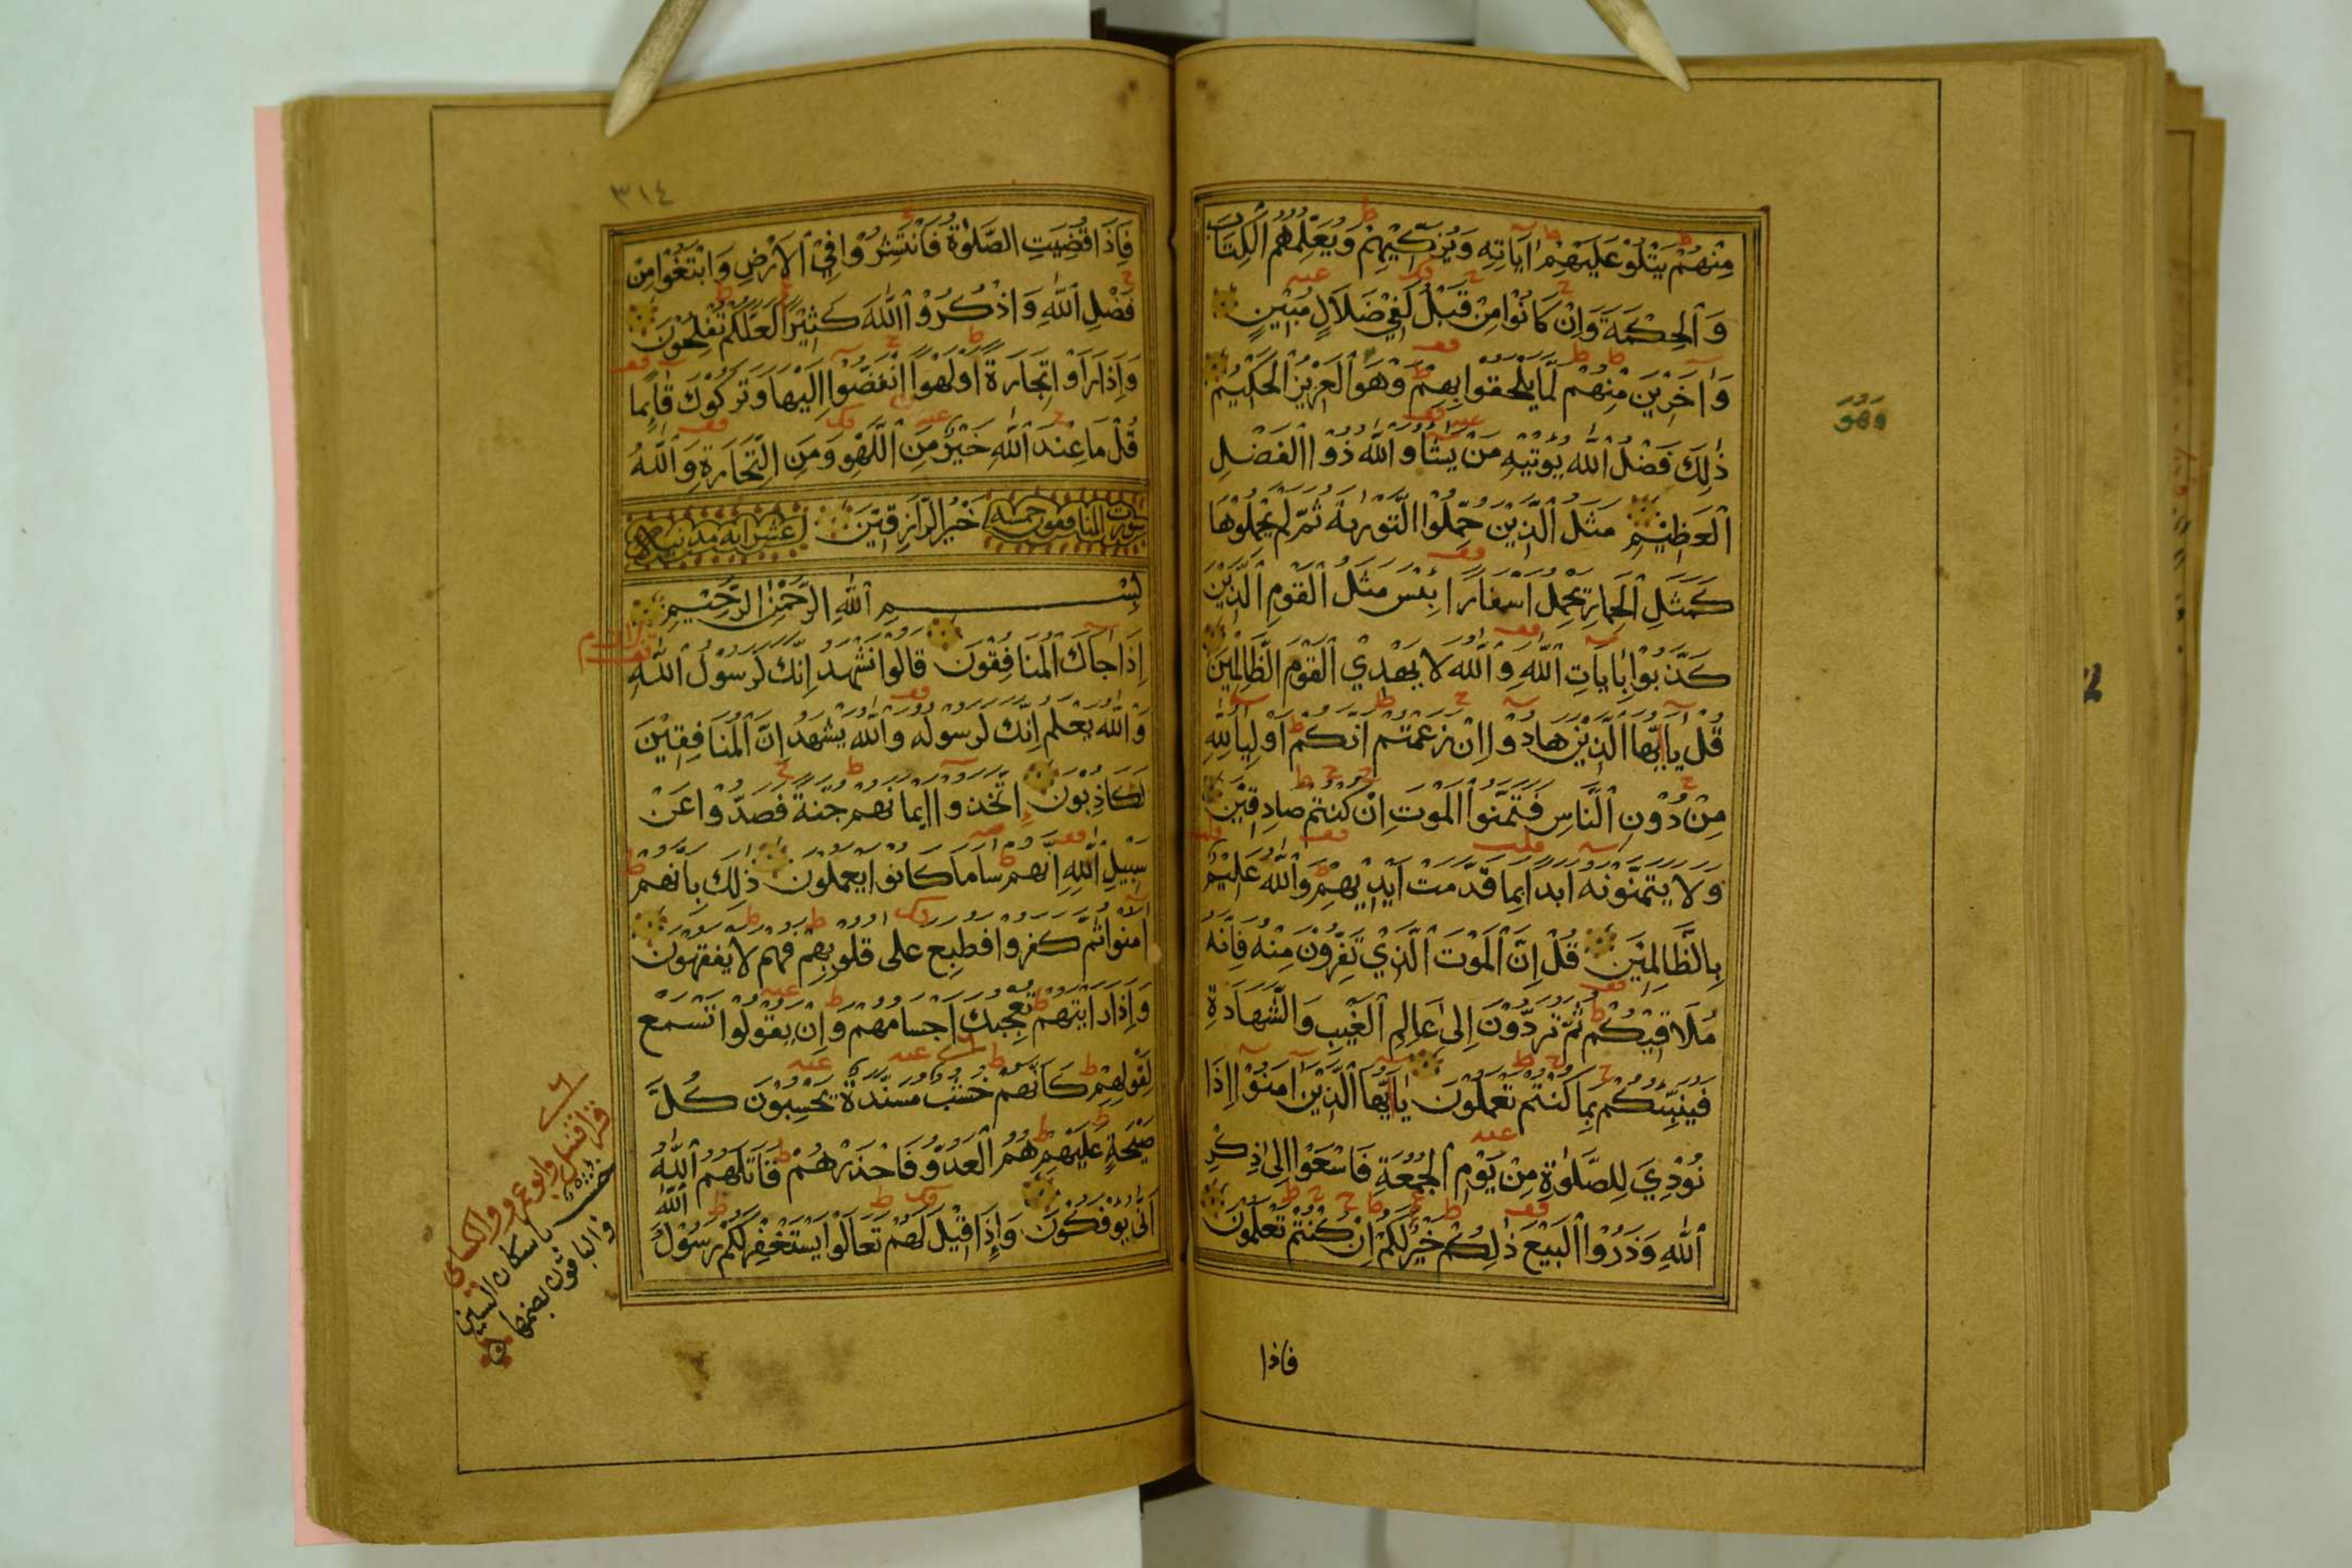 مِنْهُمْ يَتْلُوْ عَلَيْهِمْ اٰيَاتِهِ وَيُزَكِّيْهِمْ وَيُعَلِّمُهُمُ الْكِتَابَ
وَالْحِكْمَةَ وَاِنْ كَانُوْا مِنْ قَبْلُ لَفِيْ ضَلَالٍ مُبِيْنٍ
وَاٰخَرِيْنَ مِنْهُمْ لَمَّا يَلْحَقُوْا بِهِمْ وَهُوَ الْعَزِيْزُ الْحَكِيْمُ
ذٰلِكَ فَضْلُ اللّٰهِ يُوْتِيْهِ مَنْ يَشَاُ وَاللّٰهُ ذُوْا الْفَضْلِ
الْعَظِيْمِ مَثَلُ الَّذِيْنَ حُمِّلُوا التَّوْرٰىةَ ثُمَّ لَمْ يَحْمِلُوْهَا
كَمَثَلِ الْحِمَارِ يَحْمِلُ اَسْفَارًا بِئْسَ مَثَلُ الْقَوْمِ الَّذِيْنَ
كَذَّبُوْا بِاٰيَاتِ اللّٰهِ وَاللّٰهُ لَا يَهْدِي الْقَوْمَ الظَّالِمِيْنَ
قُلْ يٰا اَيُّهَا الَّذِيْنَ هَادُوْا اِنْ زَعَمْتُمْ اَنَّكُمْ اَوْلِيَا لِلّٰهِ
مِنْ دُوْنِ النَّاسِ فَتَمَنَّوُا الْمَوْتَ اِنْ كُنْتُمْ صَادِقِيْنَ
وَلَا يَتَمَنَّوْنَهُ اَبَدًا بِمَا قَدَّمَتْ اَيْدِيْهِمْ وَاللّٰهُ عَلِيْمٌ
بِالظَّالِمِيْنَ قُلْ اِنَّ الْمَوْتَ الَّذِيْ تَفِرُّوْنَ مِنْهُ فَاِنَّهُ
مُلَاقِيْكُمْ ثُمَّ تُرَدُّوْنَ اِلٰى عَالِمِ الْغَيْبِ وَالشَّهَادَةِ
فَيُنَبِّئُكُمْ بِمَا كُنْتُمْ تَعْمَلُوْنَ يٰا اَيُّهَا الَّذِيْنَ اٰمَنُوْا اِذَا
نُوْدِيَ لِلصَّلٰوةِ مِنْ يَوْمِ الْجُمُعَةِ فَاسْعَوْا اِلٰى ذِكْرِ
اللّٰهِ وَذَرُوْا الْبَيْعَ ذٰلِكُمْ خَيْرٌ لَكُمْ اِنْ كُنْتُمْ تَعْلَمُوْنَ
وَهُوَ
فاذا
٣١٤
فَاِذَا قُضِيَتِ الصَّلٰوةُ فَانْتَشِرُوْا فِي الْاَرْضِ وَابْتَغُوْا مِنْ
فَضْلِ اللّٰهِ وَاذْكُرُوْا اللّٰهَ كَثِيْرًا لَعَلَّكُمْ تُفْلِحُوْنَ
وَاِذَا رَاَوْا تِجَارَةً اَوْ لَهْوًا انْفَضُّوْا اِلَيْهَا وَتَرَكُوْكَ قَائِمًا
قُلْ مَا عِنْدَ اللّٰهِ خَيْرٌ مِنَ اللَّهْوِ وَمِنَ التِّجَارَةِ وَاللّٰهُ
خَيْرُ الرَّازِقِيْنَ
سورت المنافقون خمسه عشر ايه مدنيه
بِسْمِ اللّٰهِ الرَّحْمٰنِ الرَّحِيْمِ
اِذَا جَاكَ الْمُنَافِقُوْنَ قَالُوْا نَشْهَدُ اِنَّكَ لَرَسُوْلُ اللّٰهِ
وَاللّٰهُ يَعْلَمُ اِنَّكَ لَرَسُوْلُهُ وَاللّٰهُ يَشْهَدُ اِنَّ الْمُنَافِقِيْنَ
لَكَاذِبُوْنَ اِتَّخَذُوْا اَيْمَانَهُمْ جُنَّةً فَصَدُّوْا عَنْ
سَبِيْلِ اللّٰهِ اِنَّهُمْ سَا مَا كَانُوْا يَعْمَلُوْنَ ذٰلِكَ بِاَنَّهُمْ
اٰمَنُوْا ثُمَّ كَفَرُوْا فَطُبِعَ عَلٰى قُلُوْبِهِمْ فَهُمْ لَا يَفْقَهُوْنَ
وَاِذَا رَاَيْتَهُمْ تُعْجِبُكَ اَجْسَامُهُمْ وَاِنْ يَقُوْلُوْا تَسْمَعْ
لِقَوْلِهِمْ كَاَنَّهُمْ خُشُبٌ مُسَنَّدَةٌ يَحْسِبُوْنَ كُلَّ
صَيْحَةٍ عَلَيْهِمْ هُمُ الْعَدُوُّ فَاحْذَرْهُمْ قَاتَلَهُمُ اللّٰهُ
اَنّٰى يُوْفَكُوْنَ وَاِذَا قِيْلَ لَهُمْ تَعَالَوْا يَسْتَغْفِرْ لَكُمْ رَسُوْلُ
اللّٰهِ
قرا قنبل وابوعمرو والكسائى
خشب باسكان الشين
والباقون بضمها